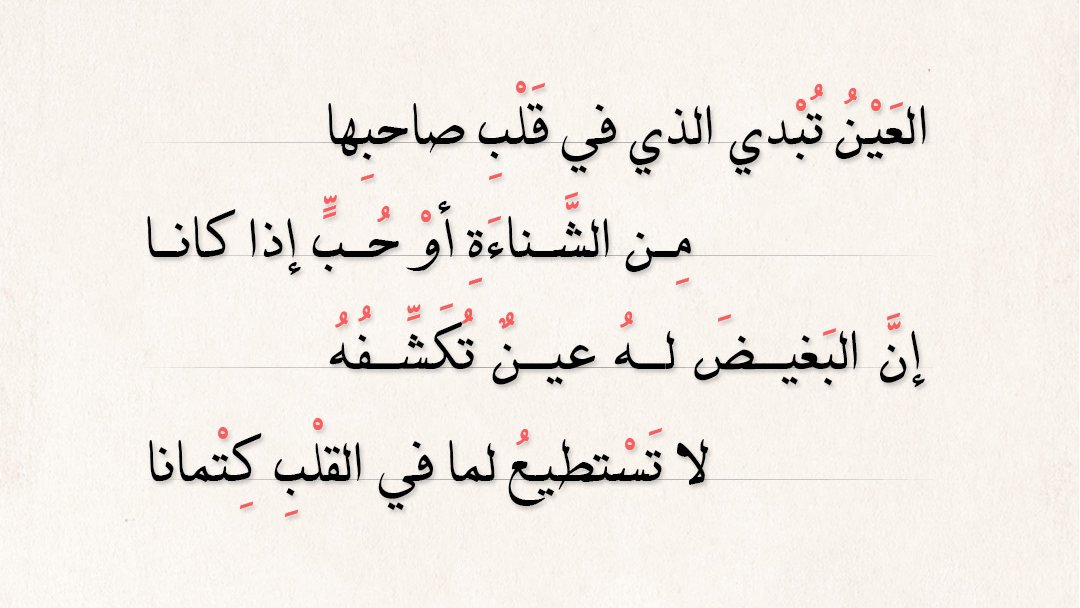 العَيْنُ تُبْدي الذي في قَلْبِ صاحبِها
مِـن الشَّـناءَةِ أوْ حُـبٍّ إذا كانـا
إنَّ البَغيـضَ لـهُ عيـنٌ تُكَشِّـفُهُ
لا تَسْتطيعُ لما في القلْبِ كِتْمانا